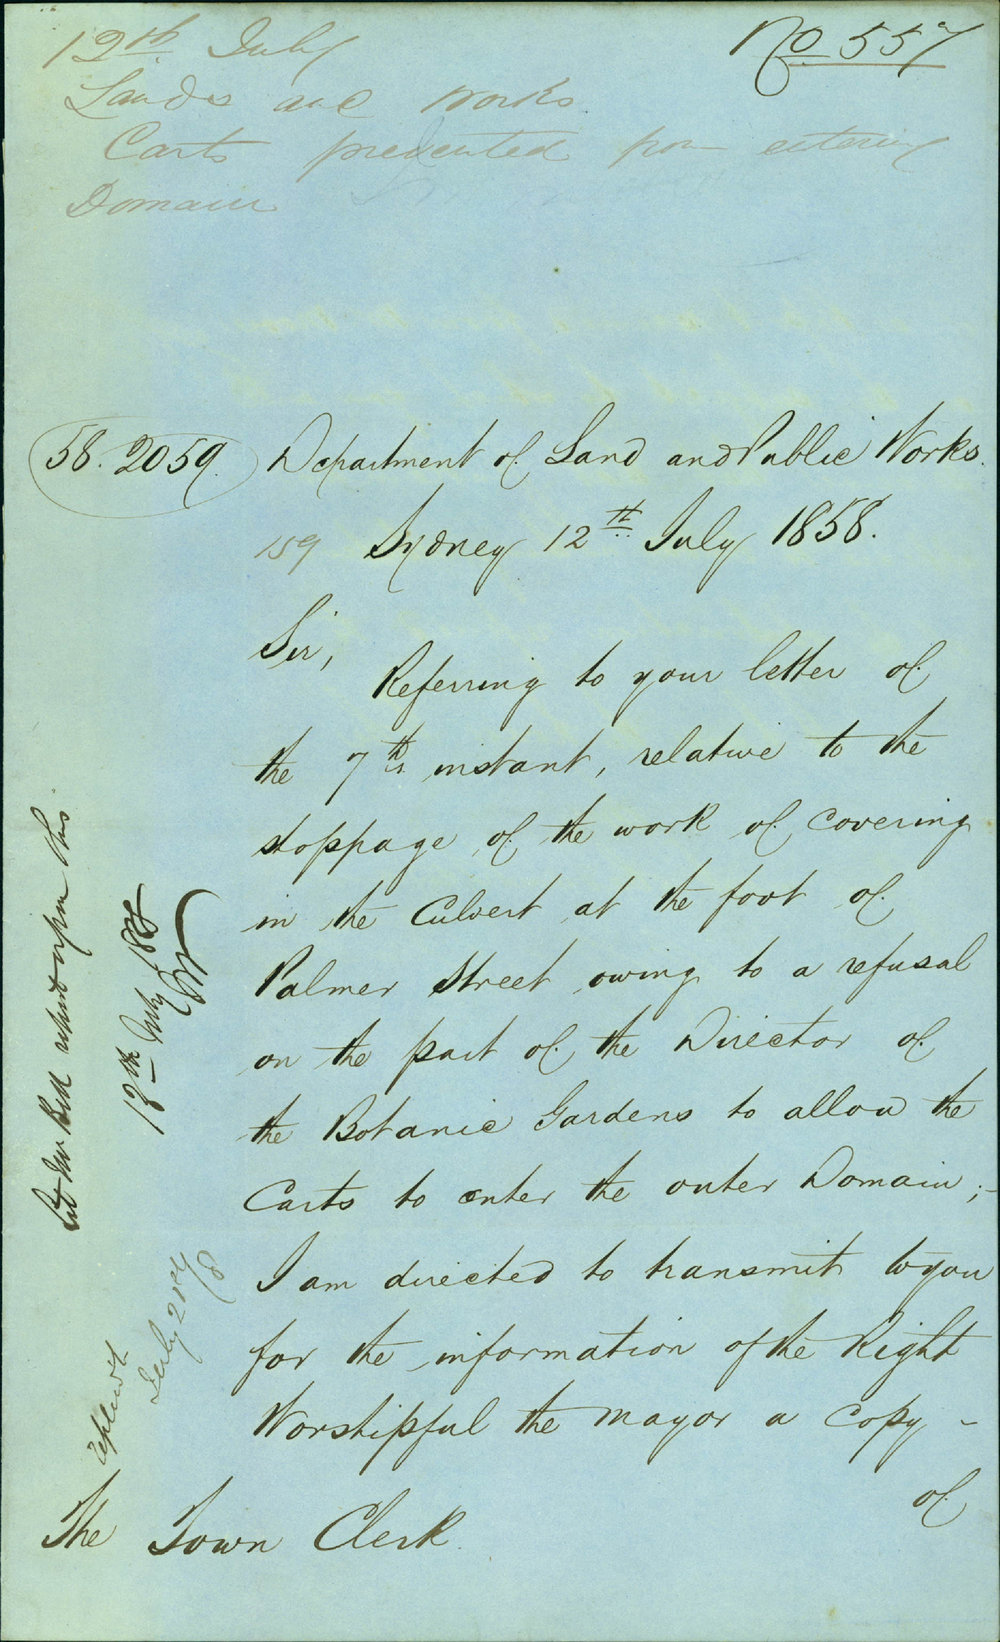 12th July
No 557
Lands and Works
Carts prevented from entering
Domain
58. 2059. Department of Land and Public Works.
159 Sydney 12th July 1858.
Sir,
Referring to your letter of
the 7th instant, relative to the
stoppage of the work of covering
in the Culvert at the foot of
Palmer Street owing to a refusal
on the part of the Director of
the Botanic Gardens to allow the
Carts to enter the outer Domain;-
I am directed to transmit to you
for the information of the Right
Worshipful the Mayor a Copy -
of
The Town Clerk
Let Mr Bell report upon this
13th July 1858
July 21st